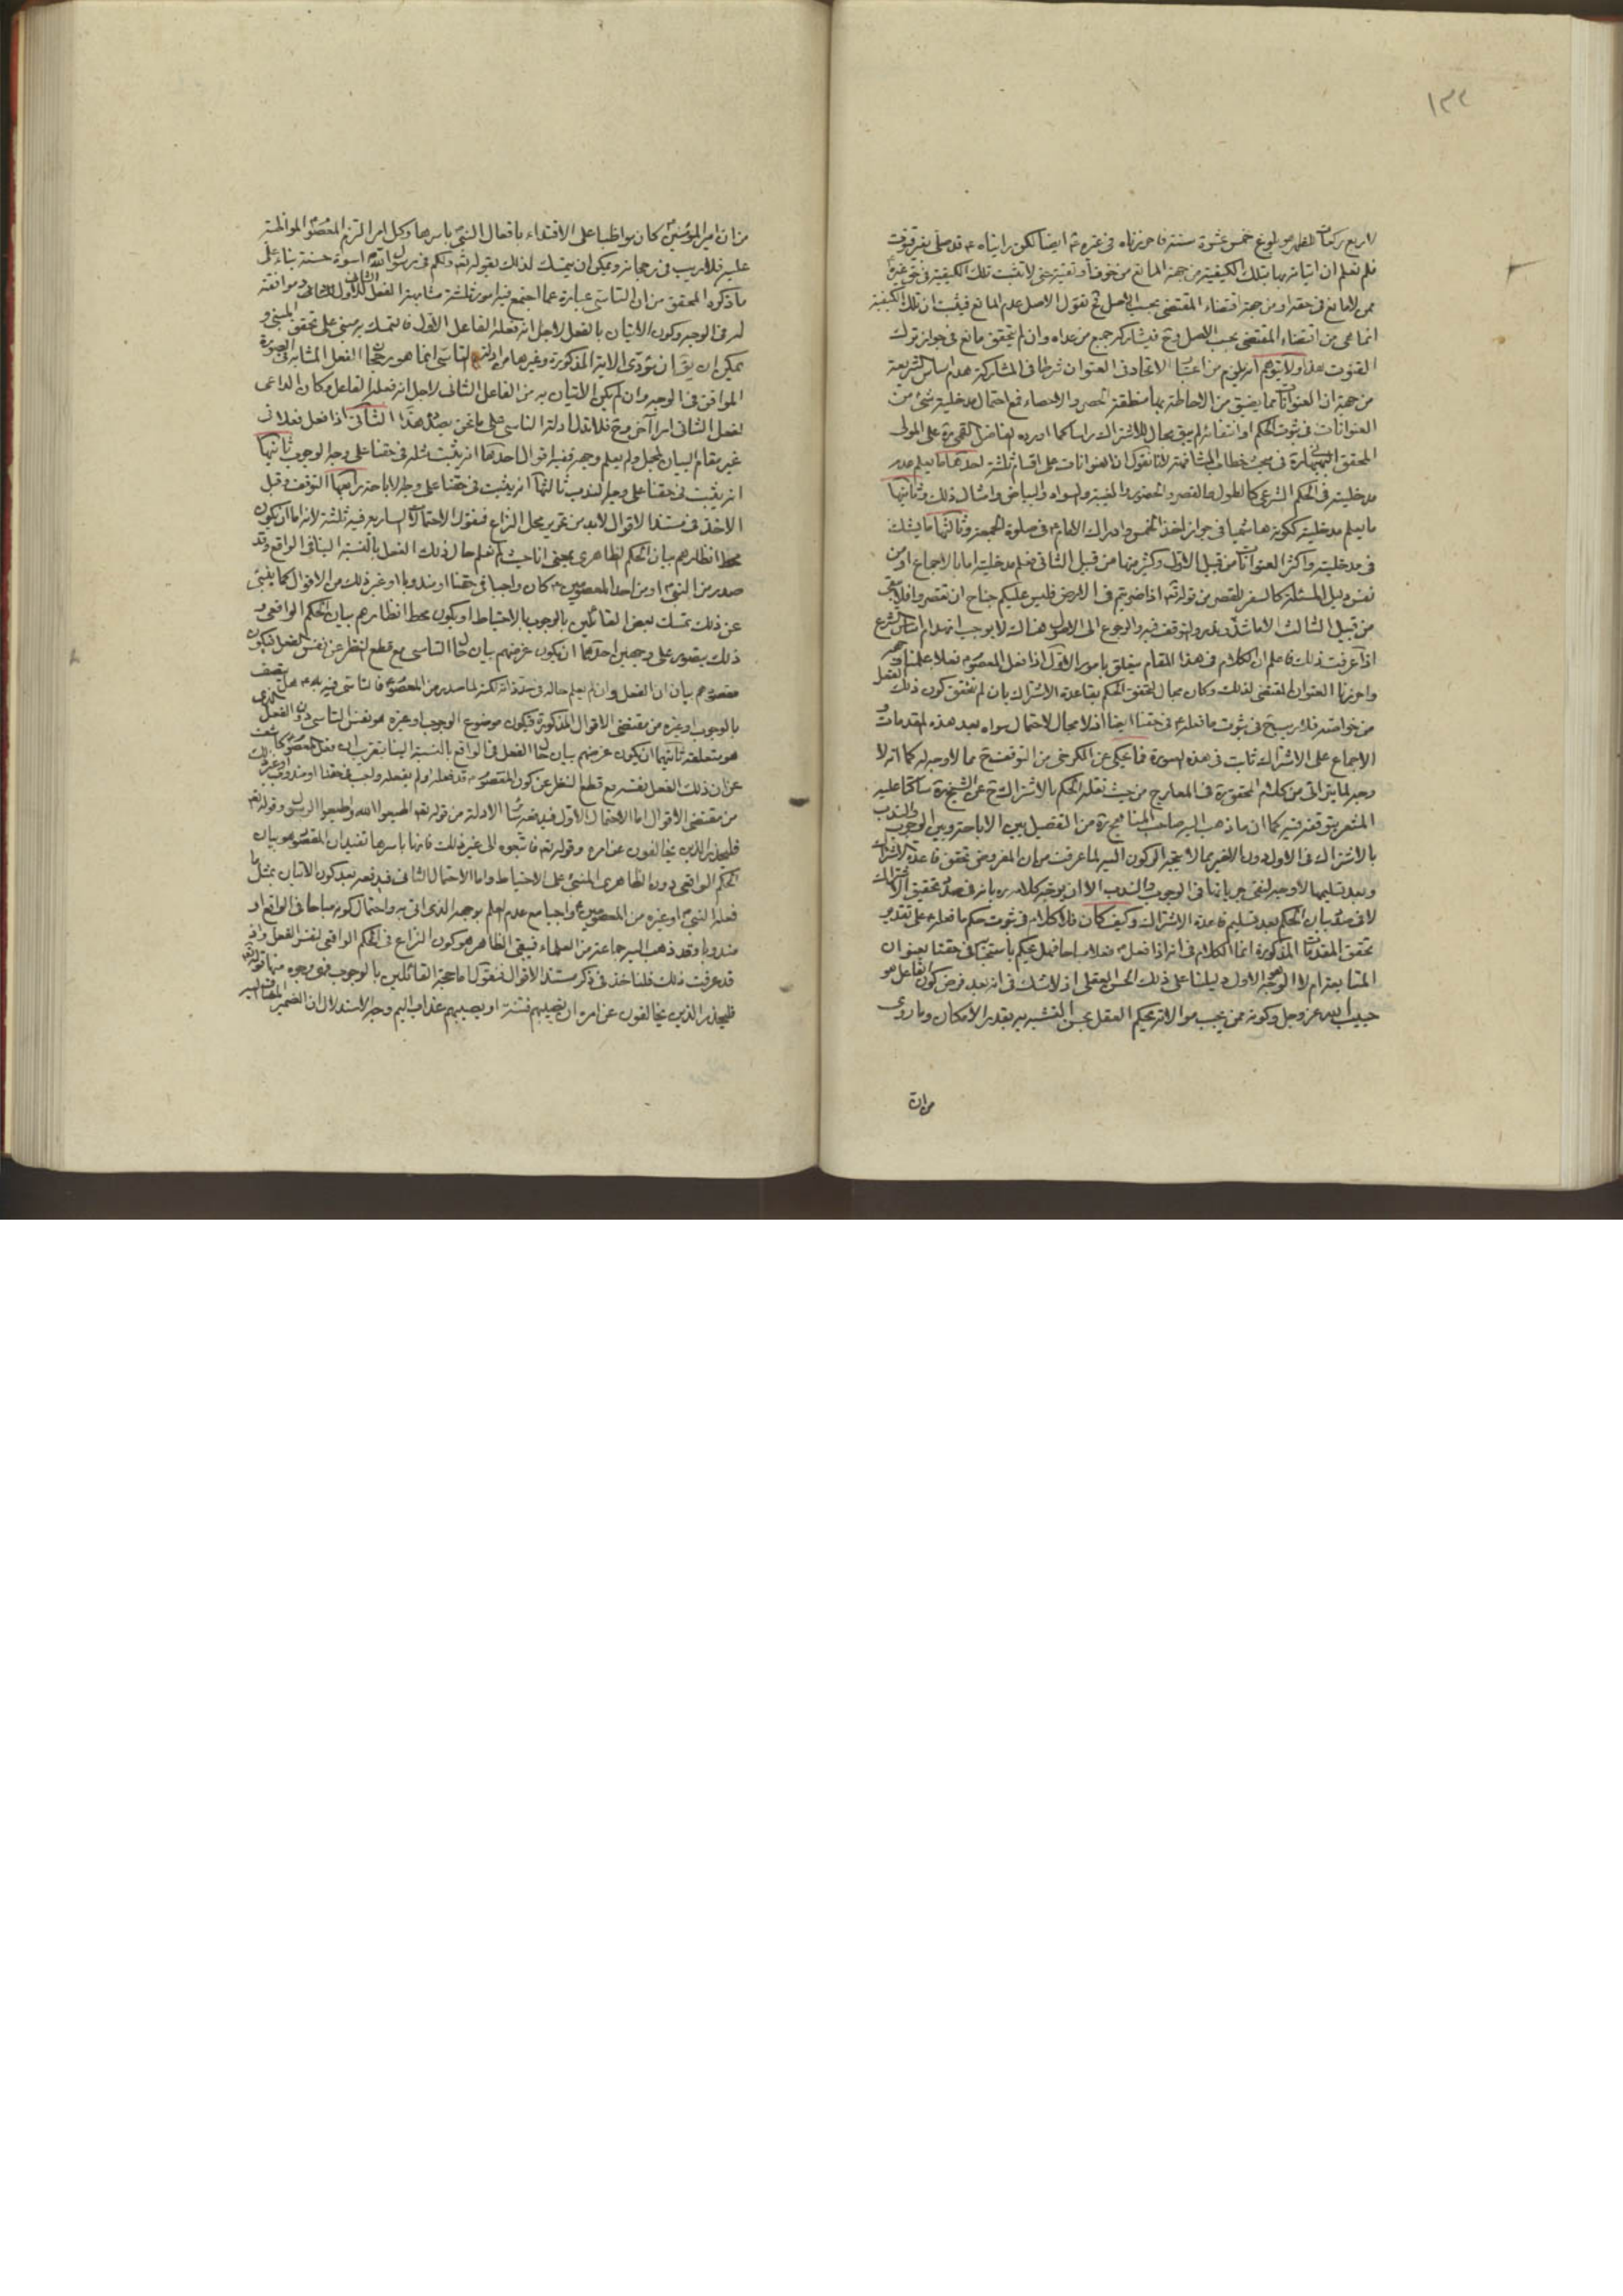 ١٣٢
لاربع ركعات الظهر هو بلوغ خمس عشرة سنة فاحرزناه فى غيره ثم ايضا لكن رايناه ع قد صلى بغير قنوت
فلم نعلم ان اتيانه بها بتلك الكيفية من جهة المانع من خوف او تقية حتى لا تثبت تلك الكيفية فى حق غيره
ممن لا مانع فى حقه او من جهة اقتضاء المقتضى بحسب الاصل فح نقول الاصل عدم المانع فيثبت ان تلك الكيفية
انما هى من اقتضاء المقتضى بحسب الاصل وح فيشاركه جميع من عداه وان لم يتحقق مانع فى جواز ترك
القنوت هذا ولا يتوهم انه يلزم من اعتبار الاتحاد فى العنوان شرطا فى المشاركة هدم اساس الشريعة
من جهة ان العنوانات مما يضيق من الاحاطة بها منطقة الحصر والاحصاء فمع احتمال مدخلية شىء من
العنوانات فى ثبوت الحكم او انتفائه لم يبق مجال للاشتراك راسا كما اورده الفاضل القمى ره على المولى
المحقق البهبهانى ره فى مبحث خطاب المشافهة لانا نقول ان العنوانات على اقسام ثلثة احدها ما يعلم عدم
مدخليته فى الحكم الشرعى كالطول والقصر والحضور والغيبة والسواد والبياض وامثال ذلك وثانيها
ما يعلم مدخليته ككونه هاشميا فى جواز اخذ الخمس وادراك الامام ع فى صلوة الجمعة وثالثها ما يشك
فى مدخليته واكثر العنوانات من قبيل الاول وكثير منها من قبيل الثانى فعلم مدخليته اما بالاجماع او من
نفس دليل المسئلة كالسفر للقصر من قوله تع اذا ضربتم فى الارض فليس عليكم جناح ان تقصروا فلا يبقى
من قبيل الثالث الا ما شذ وندر والتوقف فيه والرجوع الى الاصول هناك لا يوجب انهدام اساس الشرع
اذا عرفت ذلك فاعلم ان الكلام فى هذا المقام يتعلق بامور الاول اذا فعل المعصوم فعلا علمنا وجهه
واحرزنا العنوان المقتضى لذلك وكان مجال لتحقق الحكم بقاعدة الاشتراك بان لم نتحقق كون ذلك الفعل
من خواصه فلا ريب ح فى ثبوت ما فعله ع فى حقنا ايضا اذ لا مجال لاحتمال سواه بعد هذه المقدمات و
الاجماع على الاشتراك ثابت فى هذه الصورة فما يحكى عن الكرخى من التوقف ح مما لا وجه له كما انه لا
وجه لما يترائى من كلام المحقق ره فى المعارج من حيث نقله الحكم بالاشتراك ح عن الشيخ ره ساكتا عليه
المشعر بتوقفه فيه كما ان ما ذهب اليه صاحب المناهج ره من التفصيل بين الاباحة وبين الوجوب والندب
بالاشتراك فى الاول دون الاخير مما لا يتجه الركون اليه لما عرفت من ان المفروض تحقق قاعدة الاشتراك
وبعد تسليمها لا وجه لنفى جريانها فى الوجوب والندب الا ان يوجه كلامه ره بانه فى صدد تحقيق الاشتراك
لا فى صدد بيان الحكم بعد تسليم قاعدة الاشتراك وكيف كان فلا كلام فى ثبوت حكم ما فعله ع على تقدير
تحقق المقدمات المذكورة انما الكلام فى انه اذا فعل ع فعلا مباحا فهل يحكم باستحبابه فى حقنا بعنوان
المتابعة ام لا الوجه الاول دليلنا على ذلك الحسن العقلى اذ لا شك فى انه بعد فرض كون الفاعل هو
حبيب الله عز وجل وكونه ممن يجب موالاته يحكم العقل بحسن التشبه به بقدر الامكان وما روى
من ان
من ان امير المؤمنين ع كان مواظبا على الاقتداء بافعال النبى ص باسرها وكل امر التزم المعصوم المواظبة
عليه فلا ريب فى رجحانه ويمكن ان يتمسك لذلك بقوله تع ولكم فى رسول الله اسوة حسنة بناء على
ما ذكره المحقق من ان التاسى عبارة عما اجتمع فيه امور ثلثة مشابهة الفعل الثانى للاول وموافقته
له فى الوجه وكون الاتيان بالفعل لاجل انه فعله الفاعل الاول فالتمسك به مبنى على تحقق المبنى و
يمكن ان يق ان مؤدى الاية المذكورة وغيرها من ادلة التاسى انما هو رجحان الفعل المشابه فى الصورة
الموافق فى الوجه وان لم يكن الاتيان به من الفاعل الثانى لاجل انه فعله الفاعل وكان الداعى
لفعل الثانى امرا آخر وح فلا تدل ادلة التاسى على ما نحن بصدده هذا الثانى اذا فعل فعلا فى
غير مقام البيان لمجمل ولم يعلم وجهه ففيه اقوال احدها انه يثبت مثله فى حقنا على وجه الوجوب ثانيها
انه يثبت فى حقنا على وجه الندب ثالثها انه يثبت فى حقنا على وجه الاباحة رابعها التوقف وقبل
الاخذ فى مستند الاقوال لابد من تحرير محل النزاع فنقول الاحتمالات السارية فيه ثلثة لانه اما ان يكون
محط انظارهم بيان الحكم الظاهرى بمعنى انا حيث لم نعلم حال ذلك الفعل بالنسبة الينا فى الواقع وقد
صدر من النبى ص او من احد المعصومين ع كان واجبا فى حقنا او مندوبا او غير ذلك من الاقوال كما ينبئ
عن ذلك تمسك بعض القائلين بالوجوب بالاحتياط او يكون محط انظارهم بيان الحكم الواقعى و
ذلك يتصور على وجهين احدهما ان يكون غرضهم بيان حال التاسى مع قطع النظر عن نفس الفعل فيكون
مقصودهم بيان ان الفعل وان لم يعلم حاله فى حد ذاته لكنه لما صدر من المعصوم فالتاسى فيه به ع هل يتصف
بالوجوب او غيره من مقتضى الاقوال المذكورة فيكون موضوع الوجوب او غيره هو نفس التاسى دون الفعل الذى
هو متعلقه ثانيهما ان يكون غرضهم بيان حال الفعل فى الواقع بالنسبة الينا بتقريب ان فعل المعصوم كاشف
عن ان ذلك الفعل بنفسه مع قطع النظر عن كون المعصوم ع قد فعله او لم يفعله واجب فى حقنا او مندوب او غير ذلك
من مقتضى الاقوال اما الاحتمال الاول فيدفعه الادلة من قوله تع اطيعوا الله واطيعوا الرسول وقوله تع
فليحذر الذين يخالفون عن امره وقوله تع فاتبعوه الى غير ذلك فانها باسرها تفيد ان المقصود هو بيان
الحكم الواقعى دون الظاهرى المبنى على الاحتياط واما الاحتمال الثانى فيدفعه بعد كون الاتيان بمثل ما
فعله النبى ص او غيره من المعصومين ع واجبا مع عدم العلم بوجهه الذى اتى به واحتمال كونه مباحا فى الواقع او
مندوبا وقد ذهب اليه جماعة من العلماء فبقى الظاهر هو كون النزاع فى الحكم الواقعى لنفس الفعل واذ
قد عرفت ذلك فلناخذ فى ذكر مستند الاقوال فنقول اما حجة القائلين بالوجوب فهى وجوه منها قوله تع
فليحذر الذين يخالفون عن امره ان تصيبهم فتنة او يصيبهم عذاب اليم وجه الاستدلال ان الضمير المضاف اليه